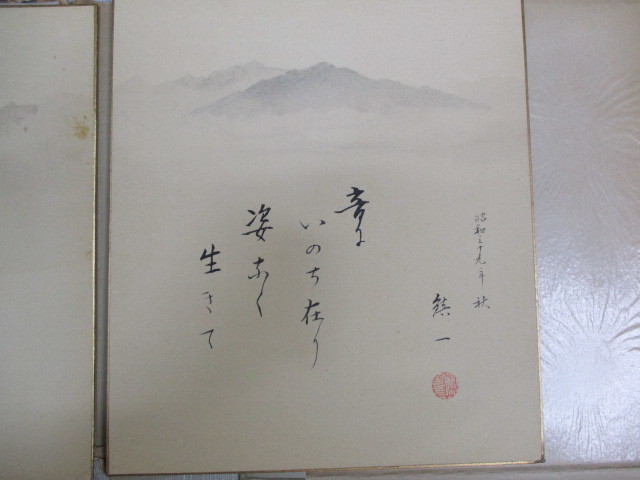 昭和三十九年 秋
鎮一
音に
いのち在り
姿なく
生きて